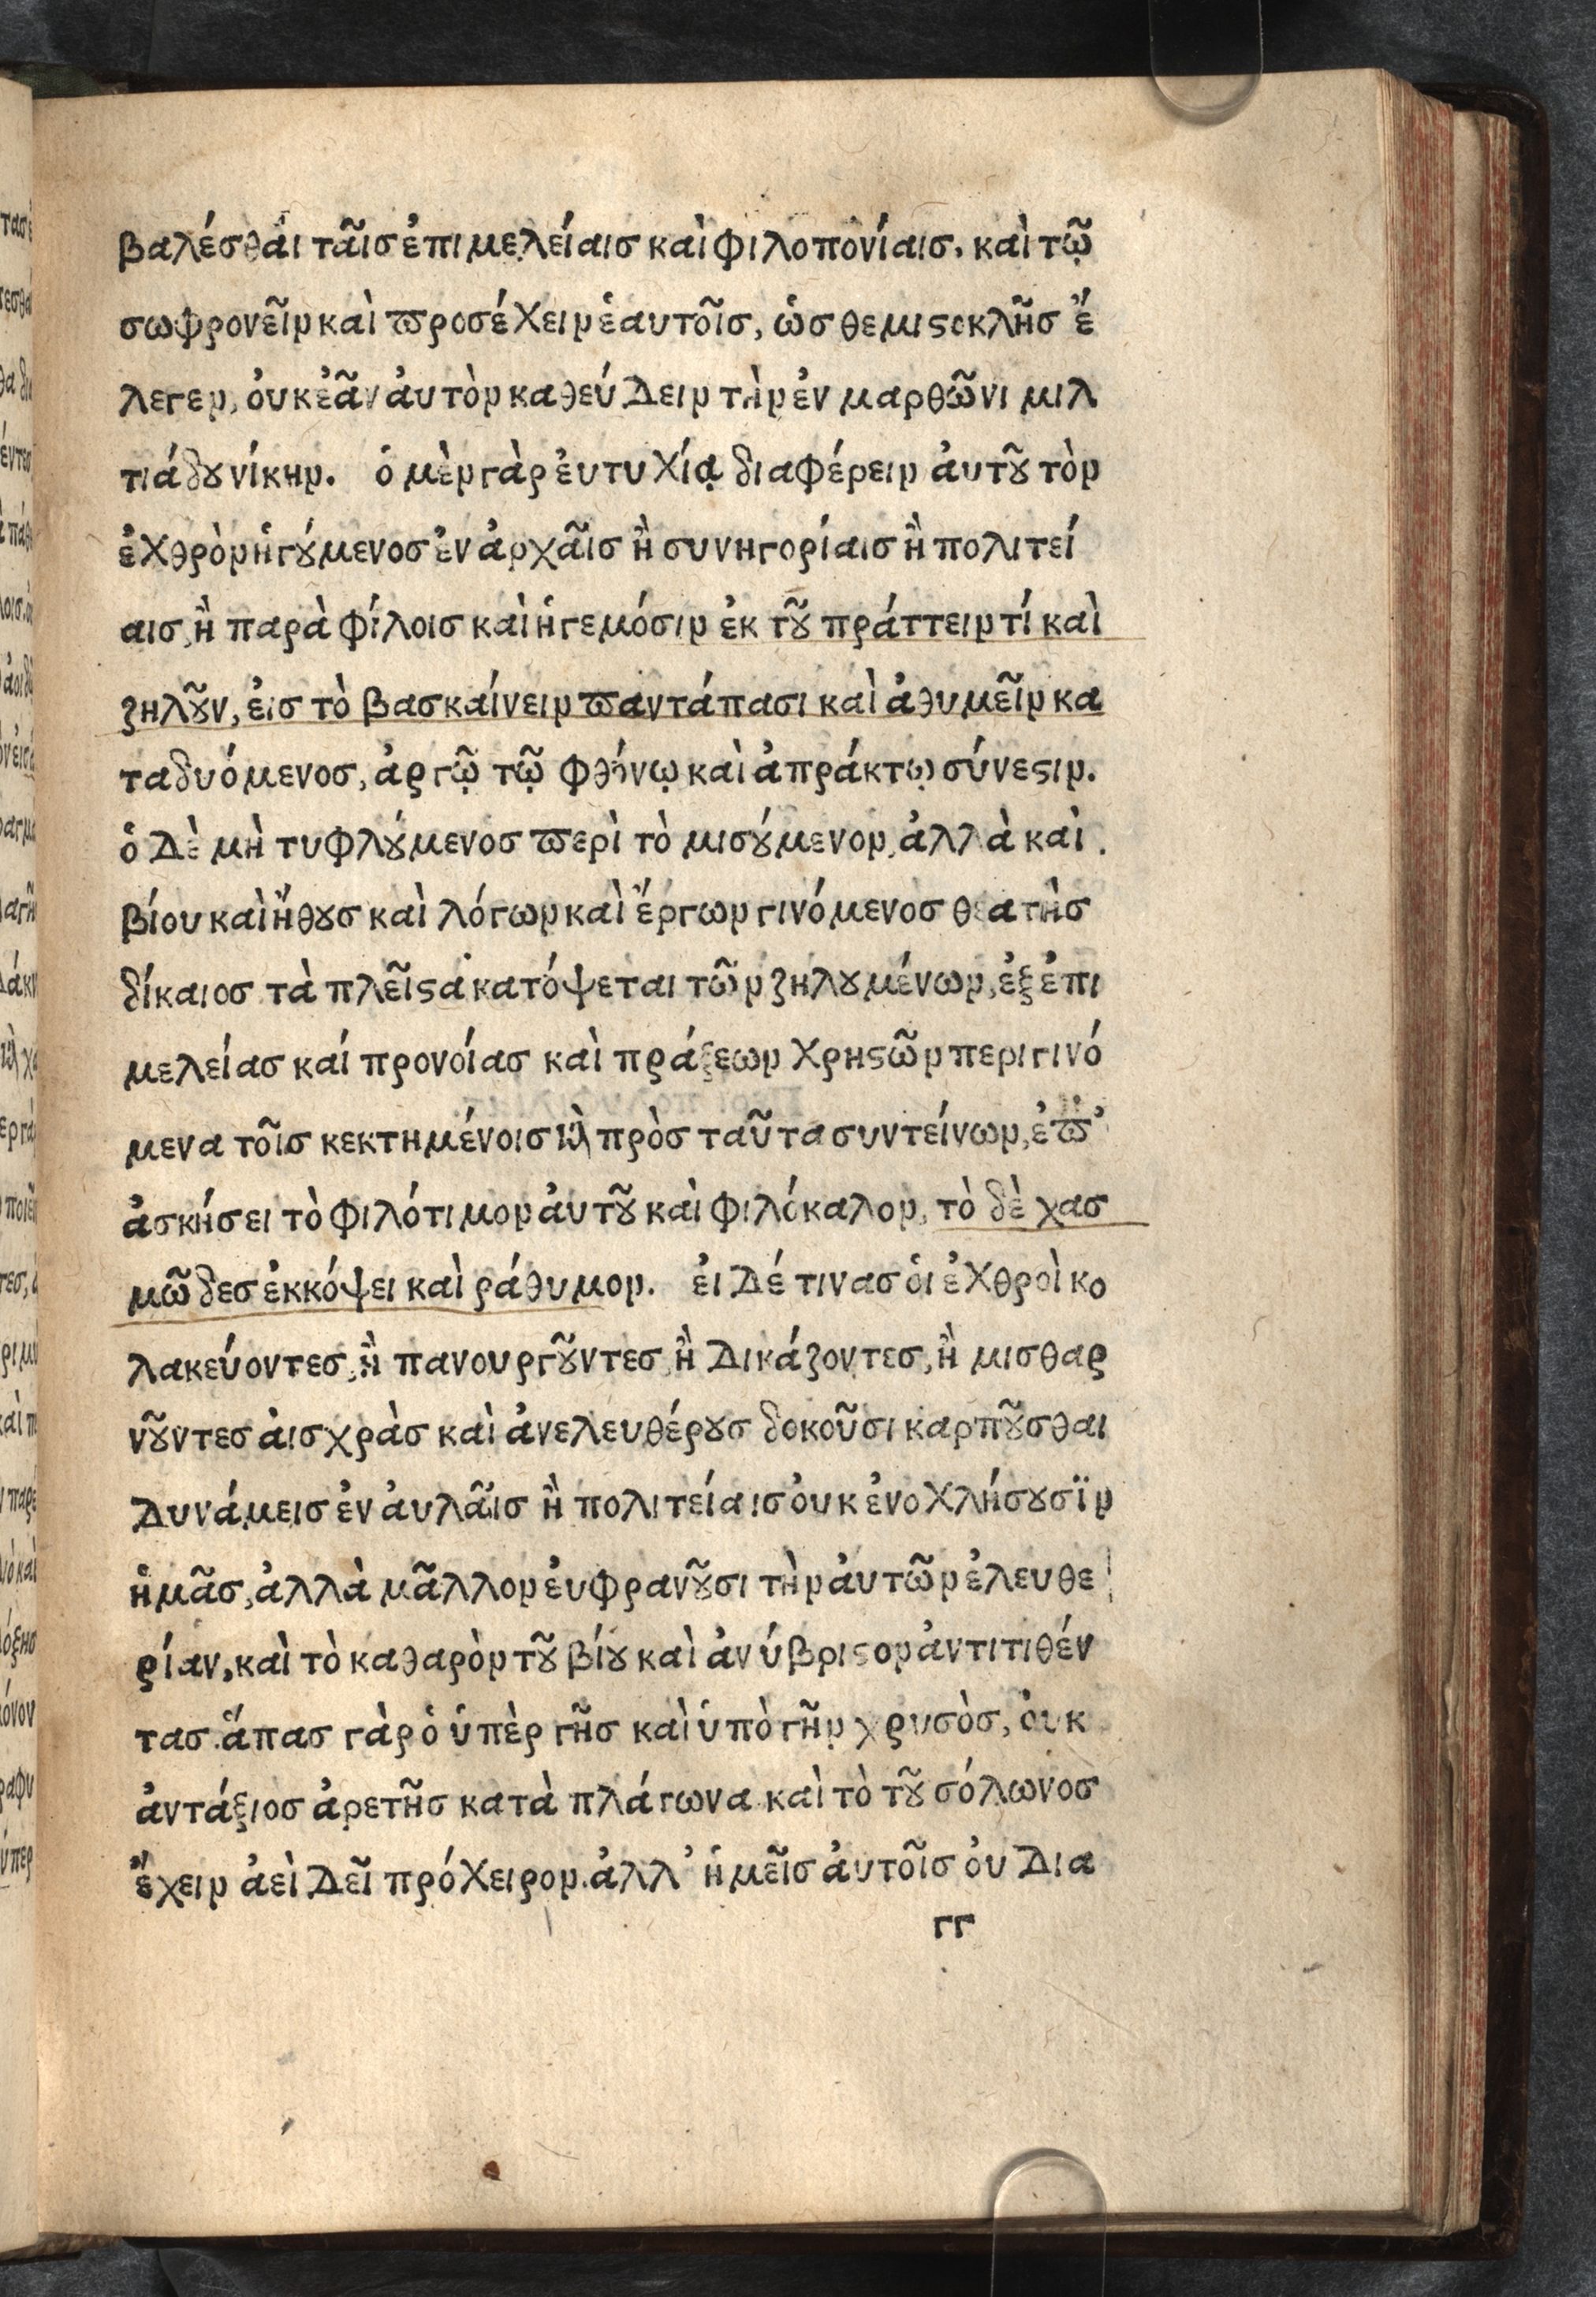 βαλέσθαι ταῖσ ἐπιμελείαισ καὶ φιλοπονίαισ, καὶ τῷ
σωφρονεῖν καὶ προσέχειν ἑαυτοῖσ, ὡσ θεμιϛοκλῆσ ἔ
λεγεν, ὀυκ ἐᾶν ἀυτὸν καθεύδειν τὴν ἐν μαρθῶνι μιλ
τιάδȣ νίκην. ὁ μὲν γὰρ ἐυτυχίᾳ διαφέρειν ἀυτȣ͂ τὸν
ἐχθρὸν ἡγȣ́μενοσ ἐν ἀρχαῖσ ἢ συνηγορίαισ ἢ πολιτεί
αισ, ἢ παρὰ φίλοισ καὶ ἡγεμόσιν ἐκ τȣ͂ πράττειν τί καὶ
ζηλȣ͂ν, ἐισ τὸ βασκαίνειν παντάπασι καὶ ἀθυμεῖν κα
ταδυόμενοσ, ἀργῷ τῷ φθόνῳ καὶ ἀπράκτῳ σύνεϛιν.
ὁ δὲ μὴ τυφλȣ́μενοσ περὶ τὸ μισȣ́μενον, ἀλλὰ καὶ
βίου καὶ ἤθȣσ καὶ λόγων καὶ ἔργων γινόμενοσ θεατὴσ
δίκαιοσ τὰ πλεῖϛα κατόψεται τῶν ζηλȣμένων, ἐξ ἐπι
μελείασ καί προνοίασ καὶ πράξεων χρηϛῶν περιγινό
μενα τοῖσ κεκτημένοισ κὶ πρὸσ ταῦτα συντείνων, ἐπ’
ἀσκήσει τὸ φιλότιμον ἀυτȣ͂ καὶ φιλόκαλον, τὸ δὲ χασ
μῶδεσ ἐκκόψει καὶ ράθυμον. ἐι δέ τινασ ὁι ἐχθροὶ κο
λακεύοντεσ, ἢ πανουργȣ͂ντεσ, ἢ δικάζοντεσ, ἢ μισθαρ
νȣ͂ντεσ ἀισχρὰσ καὶ ἀνελευθέρȣσ δοκοῦσι καρπȣ͂σθαι
δυνάμεισ ἐν ἀυλαῖσ ἢ πολιτείαισ ὀυκ ἐνοχλήσȣσϊν
ἡμᾶσ, ἀλλὰ μᾶλλον ἐυφρανȣ͂σι τὴν ἀυτῶν ἐλευθε
ρίαν, καὶ τὸ καθαρὸν τȣ͂ βίȣ καὶ ἀνύβριϛον ἀντιτιθέν
τασ. ἅπασ γὰρ ὁ ὑπὲρ γῆσ καὶ ὑπὸ γῆν χρυσὸσ, ὀυκ
ἀντάξιοσ ἀρετῆσ κατὰ πλάτωνα καὶ τὸ τȣ͂ σόλωνοσ
ἔχειν ἀεὶ δεῖ πρόχειρον. ἀλλ’ ἡμεῖσ ἀυτοῖσ ὀυ δια
γγ